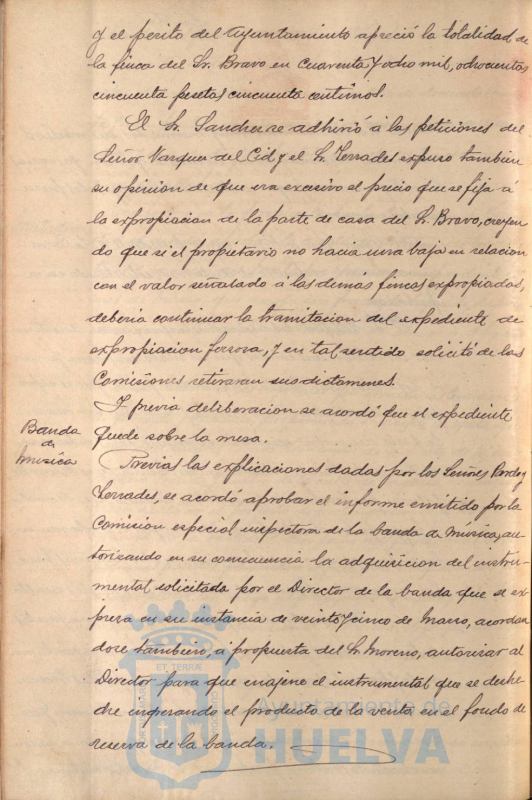 y el perito del Ayuntamiento apreció la totalidad de
la finca del Sr. Bravo en cuarenta y ocho mil, ochocientas
cincuenta pesetas cincuenta centimos.
El Sr. Sanchez se adhirió á las peticiones del
Señor Vazquez del Cid y el Sr. Terrades expuso tambien
su opinion de que era excesivo el precio que se fija á
la expropiacion de la parte de casa del Sr. Bravo, creyen
do que si el propietario no hacia una baja en relacion
con el valor señalado á las demás fincas expropiadas,
deberia continuar la tramitacion del expediente de
expropiacion forzosa, y en tal sentido solicitó de las
Comisiones retiraran sus dictamenes.
Y previa deliberacion se acordó que el expediente
quede sobre la mesa.
Banda
de
música
Previas las explicaciones dadas por los Señores y
Terrades, se acordó aprobar el informe emitido por la
Comision especial inspectora de la banda de música, au-
torizando en su consecuencia la adquisicion del instru-
mental solicitada por el Director de la banda que se ex-
presa en su instancia de veinte y cinco de Marzo, acordan
dose tambien, á propuesta del Sr. Moreno, autorizar al
Director para que enajene el instrumental que se deshe-
che ingresando el producto de la venta en el fondo de
reserva de la banda.
ET TERRÆ
Ayuntamiento de
HUELVA